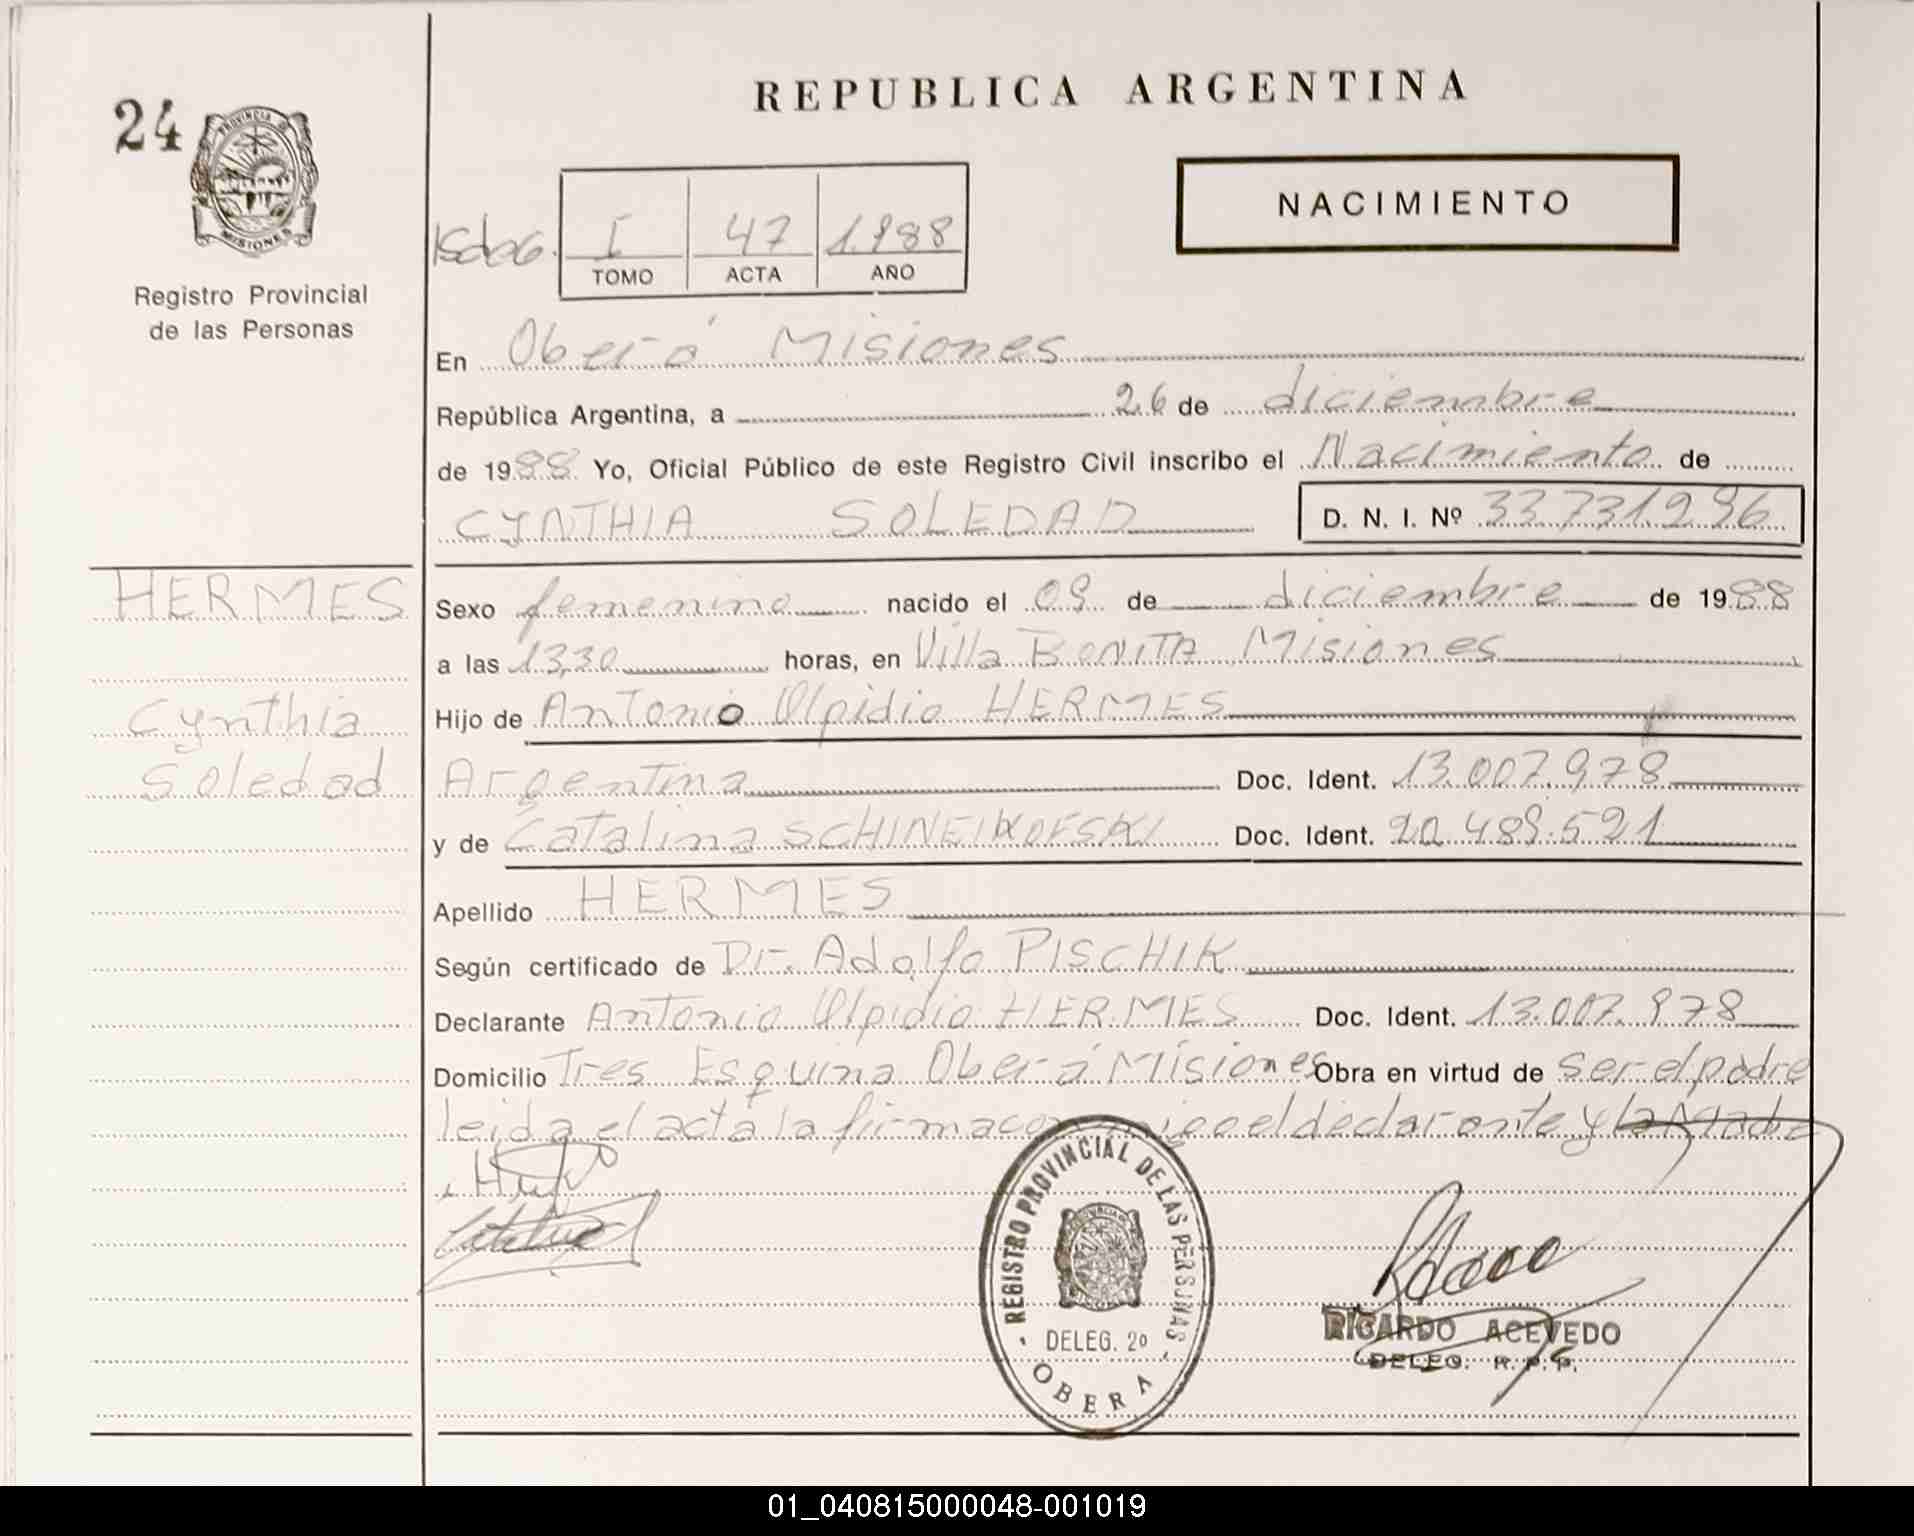 REPUBLICA ARGENTINA
24
PROVINCIA DE
MISIONES
Registro Provincial
de las Personas
NACIMIENTO
I 47 1.988
TOMO ACTA AÑO
En Oberá Misiones
República Argentina, a 26 de diciembre
de 1988 Yo, Oficial Público de este Registro Civil inscribo el Nacimiento de
CYNTHIA SOLEDAD D. N. I. Nº 33.731.296
HERMES
Cynthia
Soledad
Sexo femenino nacido el 09 de diciembre de 1988
a las 13,30 horas, en Villa BONITA Misiones
Hijo de Antonio Olpidio HERMES
Argentina Doc. Ident. 13.007.978
y de Catalina SCHINEIKOFSKI Doc. Ident. 20.489.521
Apellido HERMES
Según certificado de Dr. Adolfo PISCHIK
Declarante Antonio Olpidio HERMES Doc. Ident. 13.007.978
Domicilio Tres Esquina Oberá Misiones Obra en virtud de ser el padre
leida el acta la firma conmigo el declarante y la Madre
REGISTRO PROVINCIAL DE LAS PERSONAS
DELEG. 2º
OBERA
RICARDO ACEVEDO
DELEG. R. P. P.
01_040815000048-001019